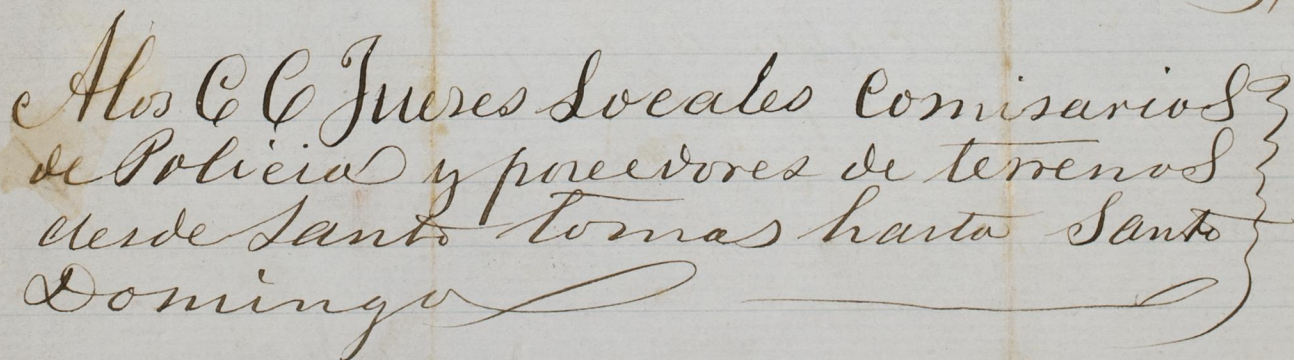 A los C C Jueses Locales Comisarios
de Policia y poseedores de terrenos
desde Santo tomas hasta Santo
Domingo